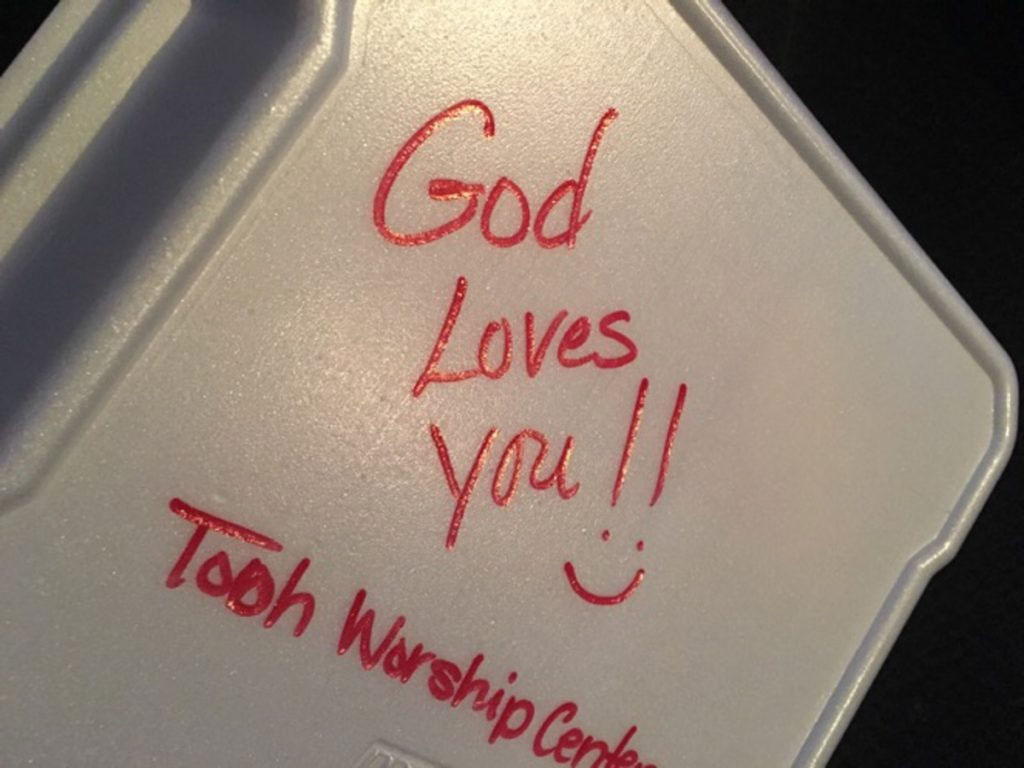 God
Loves
you!!
Tooh Worship Center